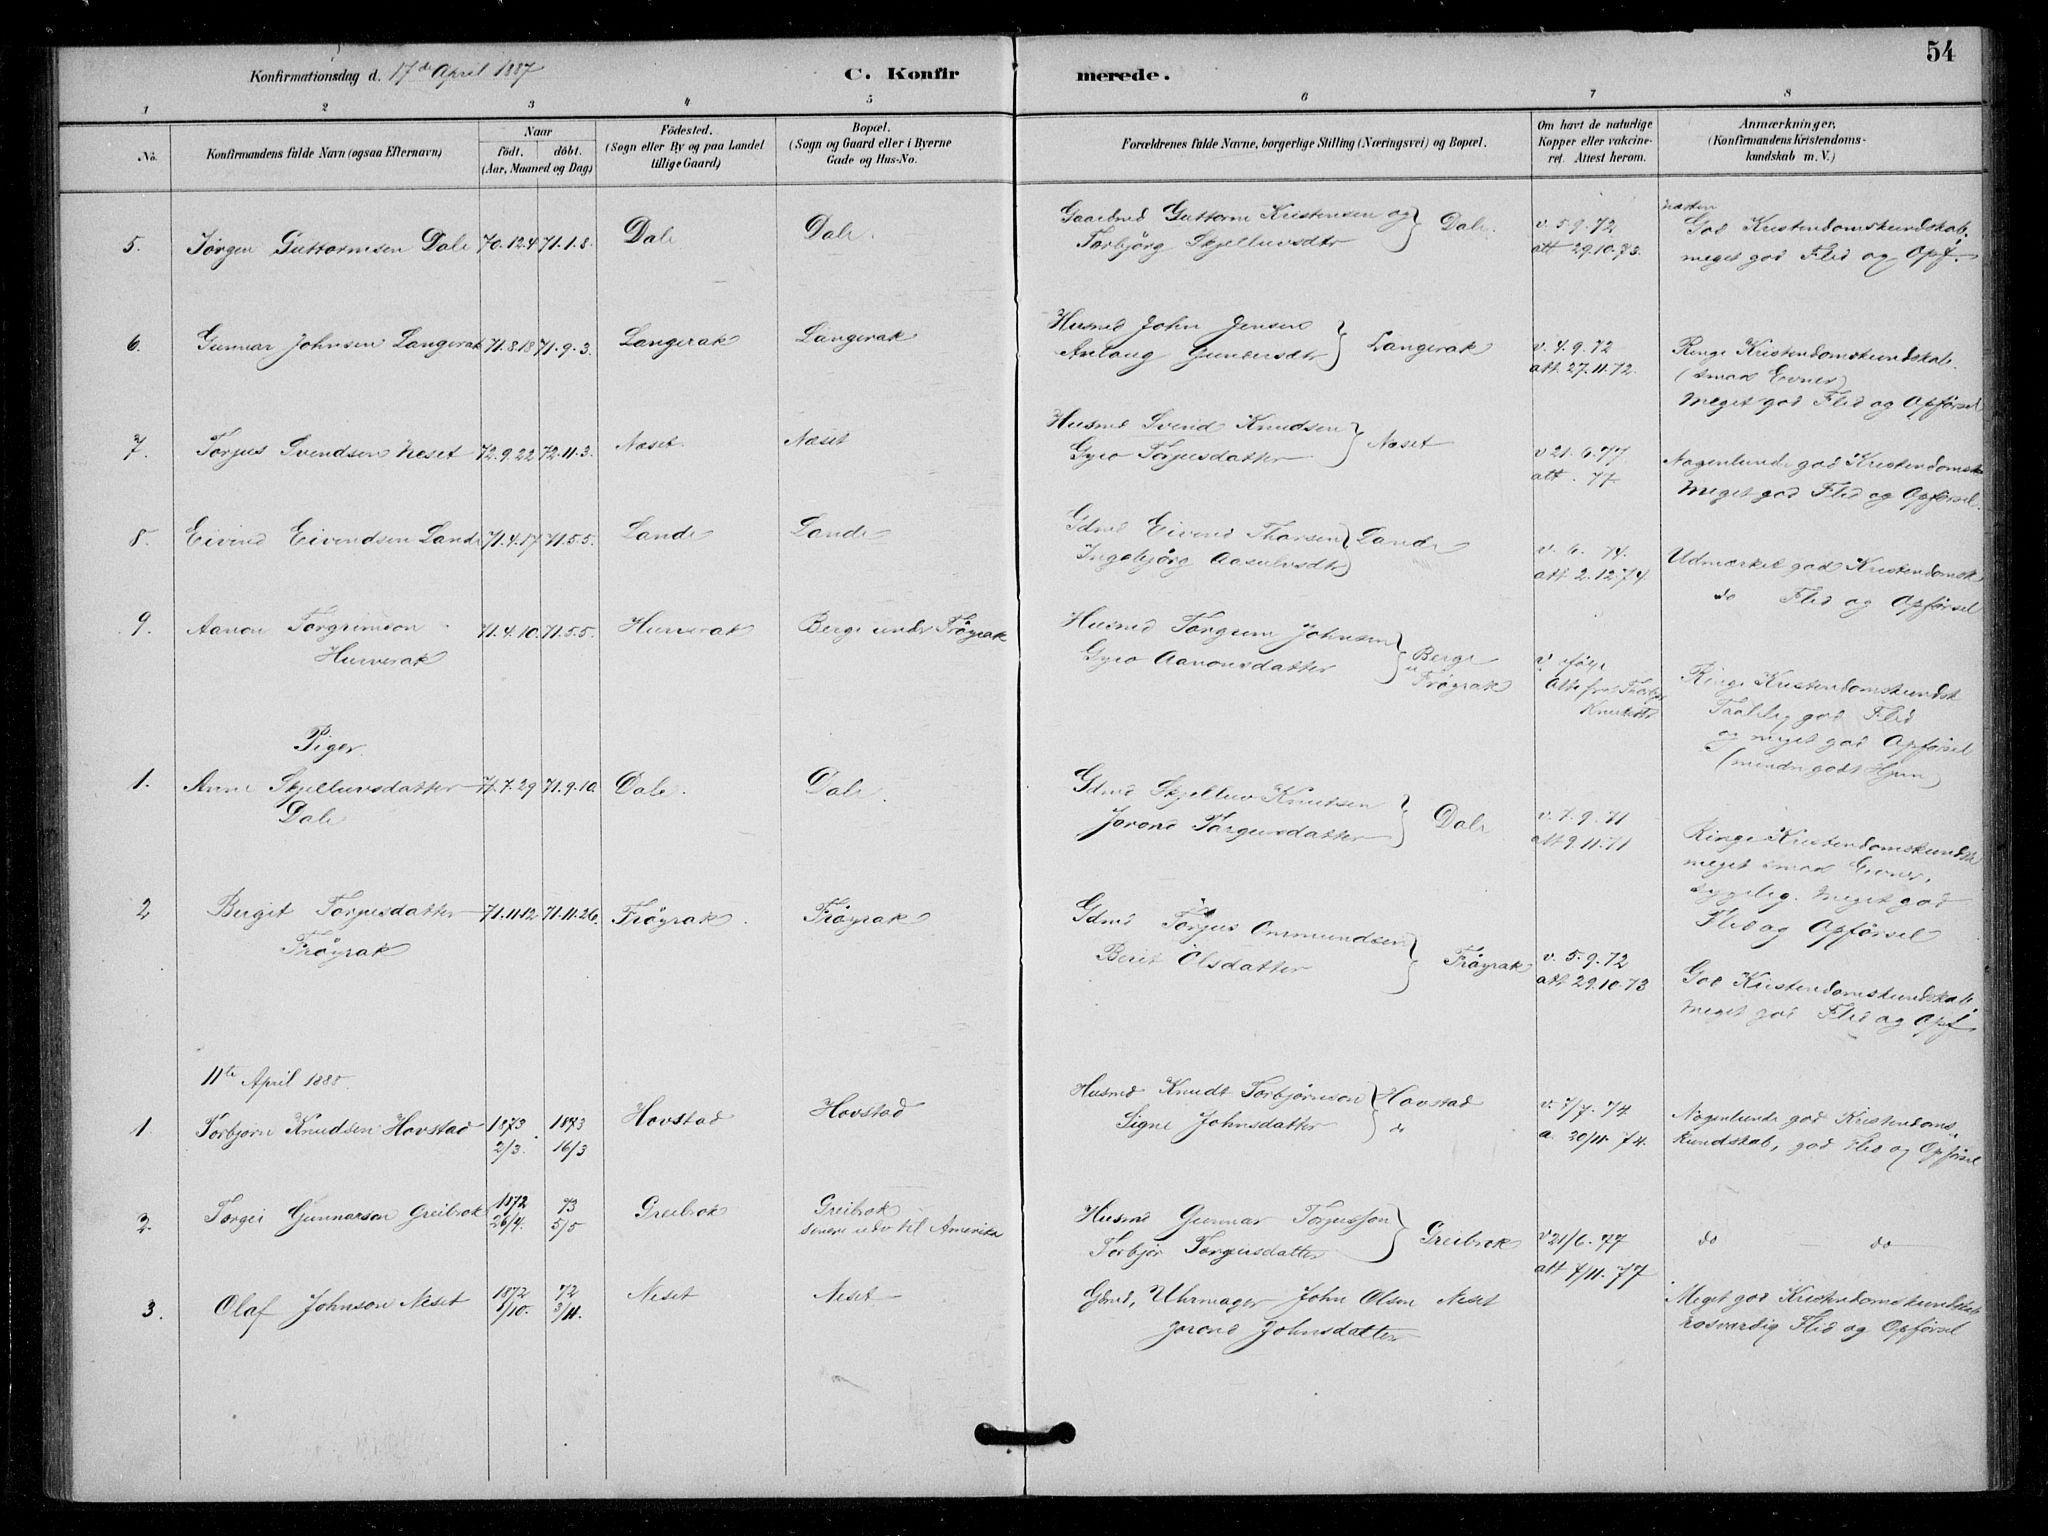 54
Konfirmationsdag d. 17de April 1887
C. Konfirmerede.
1 2 3 4 5 6 7 8
No.
Konfirmandens fulde Navn (ogsaa Efternavn)
Naar
født. døbt.
(Aar, Maaned og Dag)
Födested.
(Sogn eller By og paa Landet
tillige Gaard)
Bopæl.
(Sogn og Gaard eller i Byerne
Gade og Hus-No.
Forældrenes fulde Navne, borgerlige Stilling (Næringsvei) og Bopæl.
Om havt de naturlige
Kopper eller vakcine-
ret. Attest herom.
Anmærkninger.
(Konfirmandens Kristendoms-
kundskab m. V.)
5. Jørgen Guttormsen Dale 70.12.4 71.1.8. Dale Dale.
Gaardmd Guttorm Kristensen og
Torbjörg Skjelluvsdtr } Dale.
v. 5.9.72
att 29.10.73.
næsten
God Kristendomskundskab.
meget god Flid og Opf.
6. Gunnar Johnsen Langerak 71.8.18 71.9.3. Langerak Langerak
Husmd John Jensen
Anlaug Gundersdtr } Langerak
v. 4.9.72
att. 27.11.72.
Ringe Kristendomskundskab.
(smaa Evner)
Meget god Flid og Opførsel
7. Torjus Svendsen Neset 72.9.22 72.11.3. Næset. Næset
Husmd Svend Knudsen
Gyro Torjusdatter } Næset
v 21.6.77
att. 77.
Nogenlunde god Kristendomsk
Meget god Flid og Opførsel.
8. Eivind Eivendsen Lande 71.4.17 71.5.5. Lande Lande
Gdmd Eivind Tharsen
Ingebjörg Aasulvsdtr } Lande
v. 6. 74.
att 2.12.74.
Udmærket god Kristendomsk
do Flid og Opførsel
9. Aanon Torgrimson 71.4.10. 71.5.5. Hunerak Berge under Fröyrak
Hunverak
Husmd Torgrim Johnsen
Gyro Aanonsdatter } Berge
u
Fröyrak
v. ifølge
Att fra Thorbjr
Knudsdtr
Ringe Kristendomskundsk
Taalelig god Flid
og meget god Opførsel
(mindre godt Hjem)
Piger.
1. Anne Skjelluvsdatter 71.7.29 71.9.10. Dale. Dale.
Dale
Gdmd Skjelluv Knutsen
Jorond Torgusdatter } Dale
v. 7.9.71
att 9.11.71
Ringe Kristendomskundsk
meget smaa Evner,
sygelig. Meget god
Flid og Opførsel
2 Bergit Torjusdatter 71.11.12 71.11.26. Fröyrak. Fröyrak
Fröyrak
Gdmd Torjus Ommundsen
Berit Olsdatter } Fröyrak
v. 5.9.72
att 29.10.73
God Kristendomskundskab.
Meget god Flid og Opf
11te April 1888.
1. Torbjørn Knudsen Hovstad 1873 2/3. 1873 16/3 Hovstad Hovstad
Husmd Knudt Torbjørnson } Hovstad
Signe Johnsdatter do
v. 7/7. 74
a. 20/11. 74.
Nogenlunde god Kristendoms
kundskab, god Flid og Opførsel
2. Torgei Gunnarson Greibrok 1872 26/4. 73 5/5 Greibrok Greibrok
senere udv til Amerika
Husmd Gunnar Torjusson
Torbjør Torgusdatter } Greibrok
v 21/6. 77
att 7/11. 77
do do
3. Olaf Johnson Neset 1872 1/10. 72 3/11. Neset Neset
Gdmd, Uhrmager John Olsen Neset
Jorond Johnsdatter
Meget god Kristendomskundskab
rosværdig Flid og Opførsel